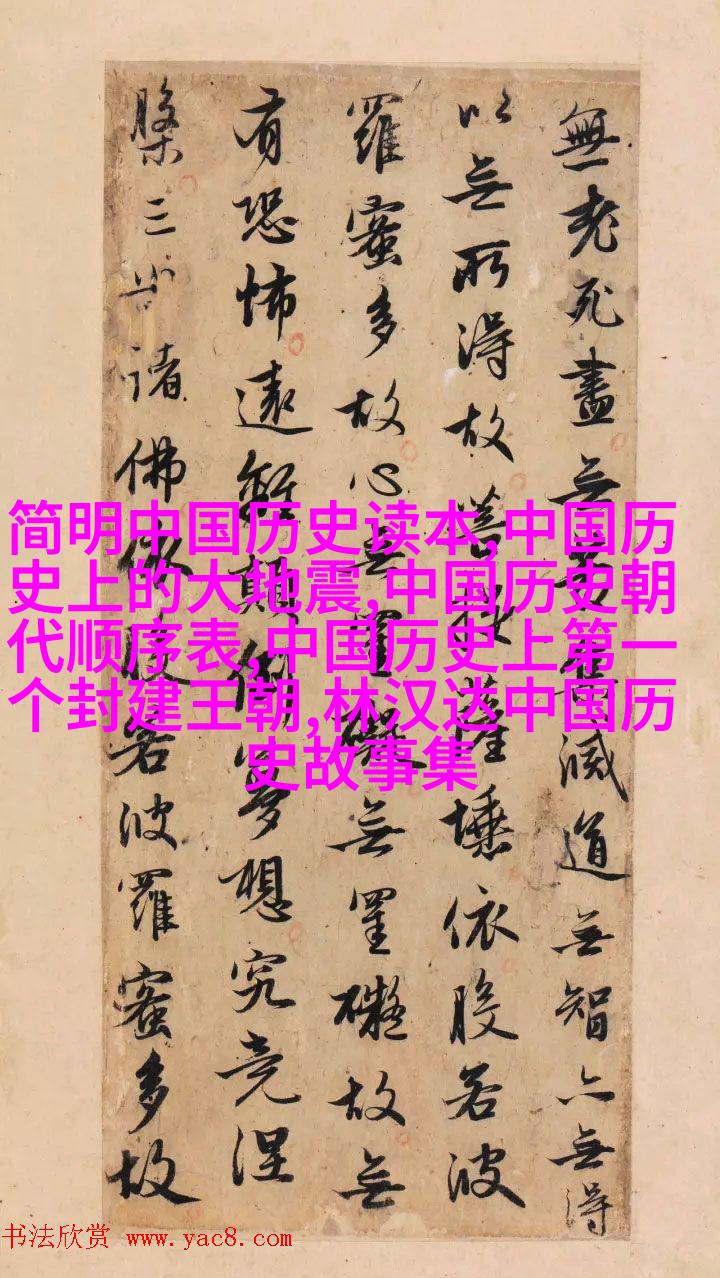 無老死盡无苦集滅道无智亦無得
以无所得故菩提薩埵依般若波
羅蜜多故心无罣礙無罣礙故無
有恐怖遠離顛倒夢想究竟涅
槃三世諸佛依般若波羅蜜多故
简明中国历史读本,中国历
史上的大地震,中国历史朝
代顺序表,中国历史上第一
个封建王朝,林汉达中国历
史故事集
书法欣赏 www.yac8.com